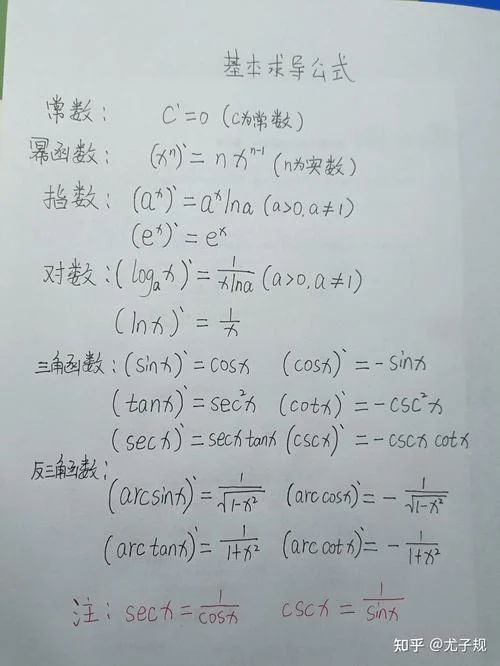 基本求导公式
常数： C`=0 (C为常数)
幂函数： (xⁿ)`= n xⁿ⁻¹ (n为实数)
指数： (aˣ)`=aˣlna (a>0,a≠1)
(eˣ)`= eˣ
对数：(logₐx)`=1/(xlna) (a>0,a≠1)
(lnx)`=1/x
三角函数：(sinx)`=cosx (cosx)`=-sinx
(tanx)`=sec²x (cotx)`=-csc²x
(secx)`=secxtanx (cscx)`=-cscxcotx
反三角函数：
(arcsinx)`=1/√(1-x²) (arccosx)`=-1/√(1-x²)
(arctanx)`=1/(1+x²) (arccotx)`=-1/(1+x²)
注：secx=1/cosx cscx=1/sinx
知乎 @尤子规